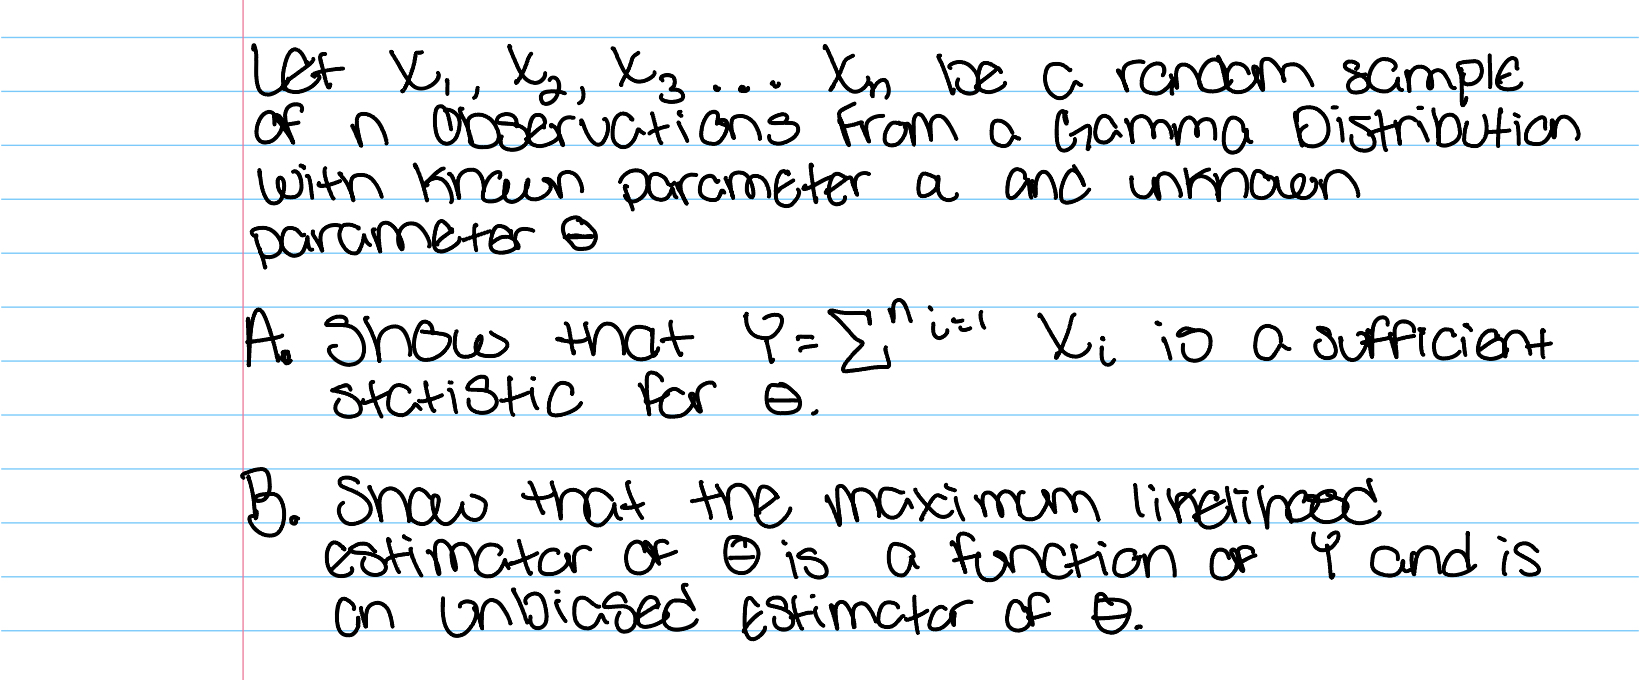 Let X₁, X₂, X₃ ... Xn be a random sample
of n Observations from a Gamma Distribution
with known parameter a and unknown
parameter θ
A. Show that Y=∑ⁿi=1 Xi is a sufficient
statistic for θ.
B. Show that the maximum likelihood
estimator of θ is a function of Y and is
an unbiased estimator of θ.